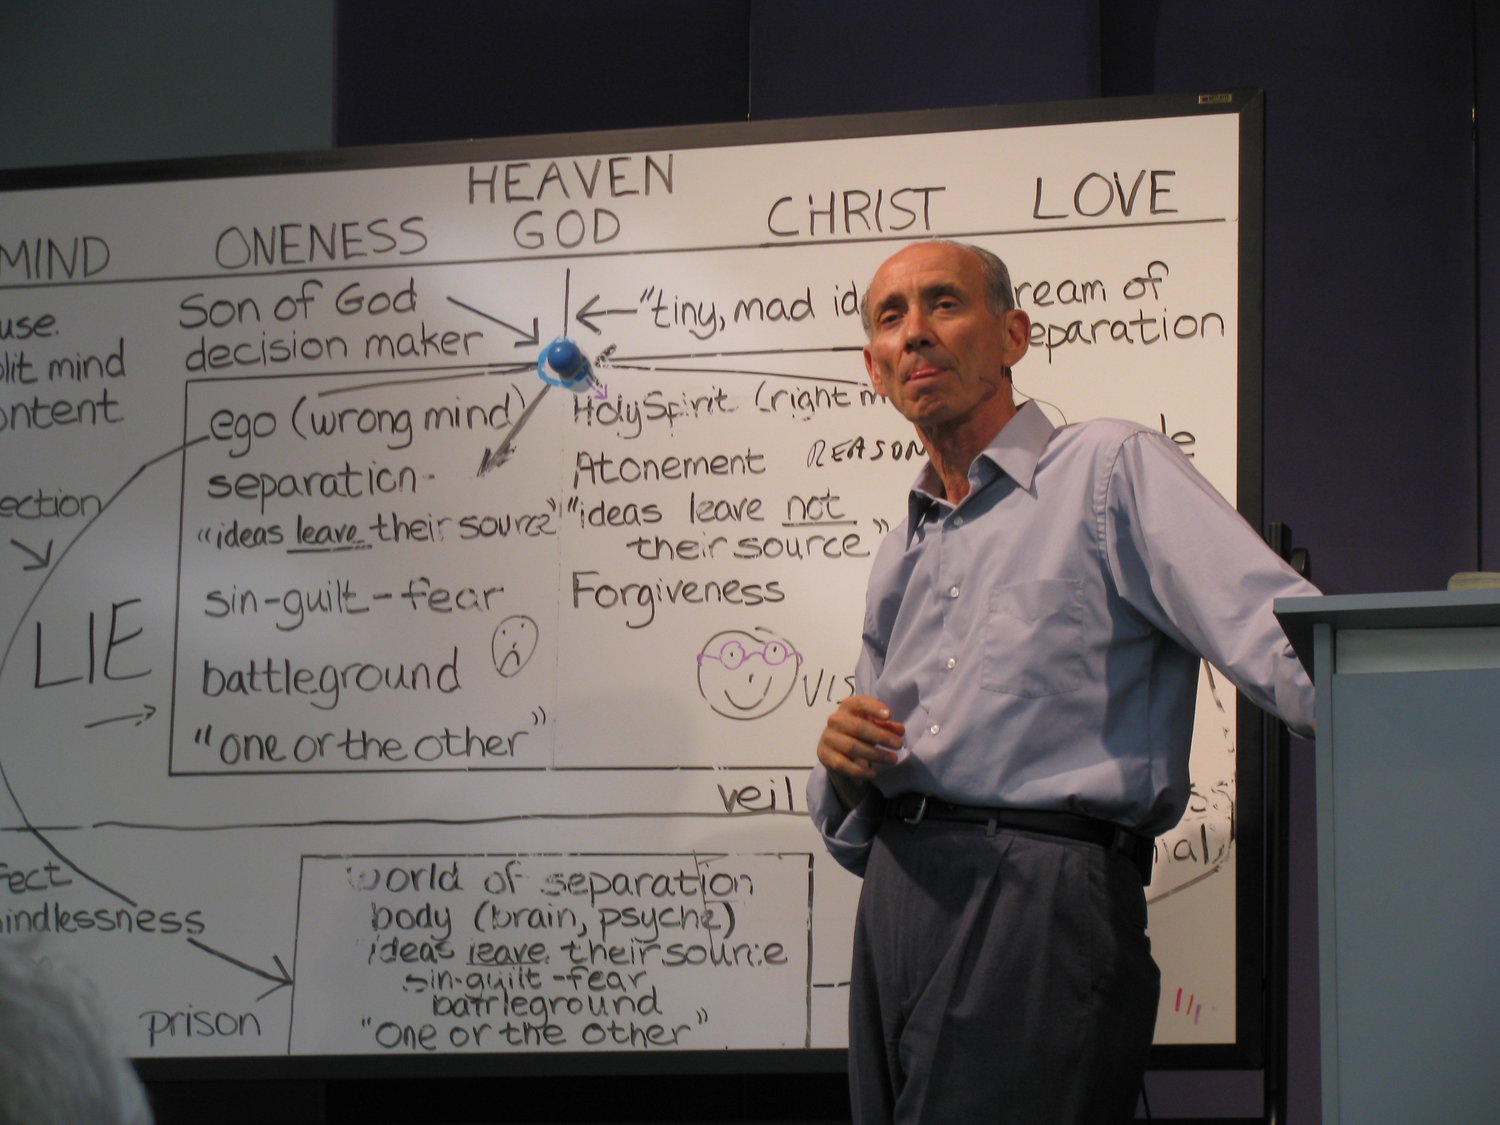 HEAVEN
MIND ONENESS GOD CHRIST LOVE
Son of God
decision maker
"tiny, mad
of
mind
ego (wrong mind)
separation
"ideas leave their source"
sin-guilt-fear
battleground
"one or the other"
Holy Spirit (right
Atonement REASON
"ideas leave not
their source"
Forgiveness
LIE
veil
world of separation
body (brain, psyche)
ideas leave their source
sin-guilt-fear
battleground
"One or the other"
prison